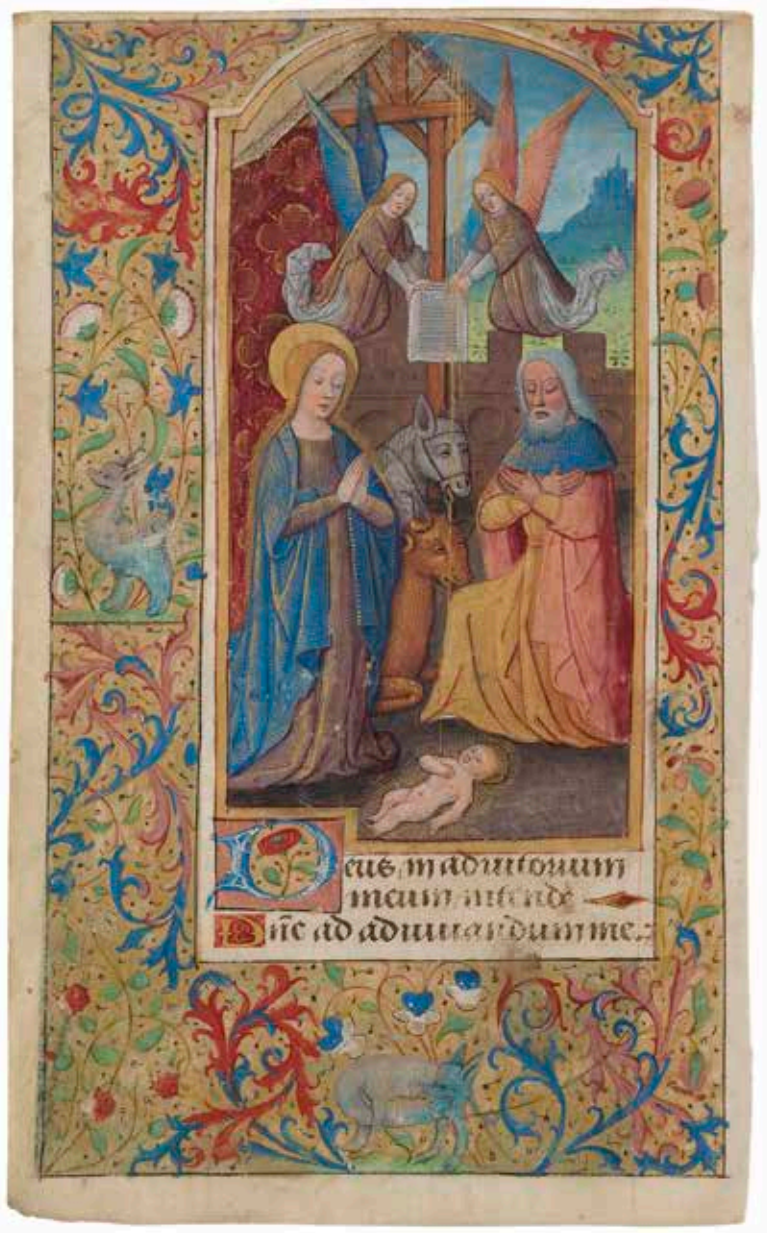 Deus, in adiutorium
meum intende
Dñe ad adiuuandum me.